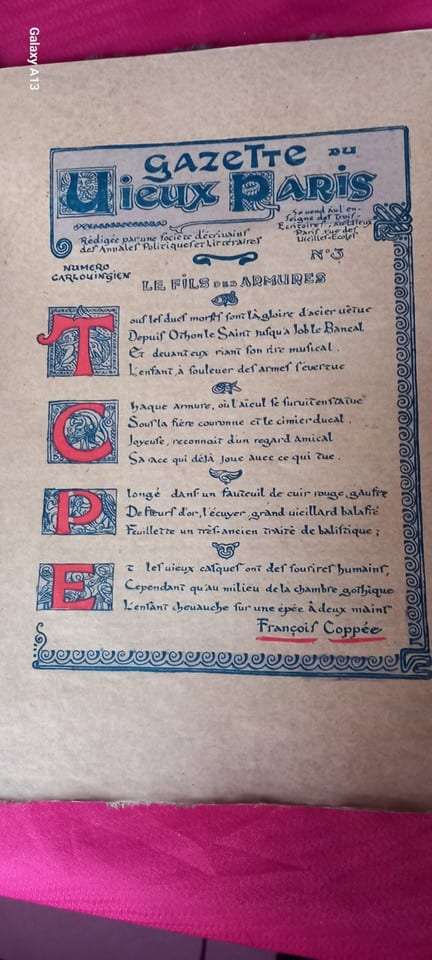 Galaxy A13
GAZETTE DU
Vieux PARIS
Rédigée par une Société d'écrivains
des Annales Politiques et Littéraires
Se vend à l'en-
seigne des Trois
Ecritoires, au Vieux
Paris rue des
Vieilles Ecoles
N° 3
NUMERO
CARLOVINGIEN
LE FILS DES ARMURES
Tous les ducs morts sont là gloire d'acier vêtue
Depuis Othon le Saint jusqu'à Job le Bancal
Et devant eux riant son rire musical.
L'enfant, à soulever des armes s'évertue
Chaque armure, où l'aïeul se survit en statue
Sous la fière couronne et le cimier ducal.
Joyeuse, reconnait d'un regard amical
Sa race qui déjà joue avec ce qui tue.
Plongé dans un fauteuil de cuir rouge, gaufré
De fleurs d'or, l'écuyer, grand vieillard balafré
Feuillette un très-ancien traité de balistique ;
Et les vieux casques ont des sourires humains,
Cependant qu'au milieu de la chambre gothique
L'enfant chevauche sur une épée à deux mains
François Coppée